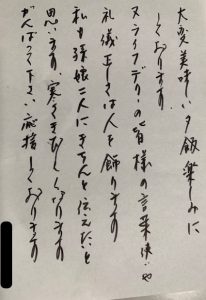 大変美味しい夕飯楽しみに
しております
スライフデリーの皆様の言葉使いや
礼儀正しさは人を飾ります
私も孫娘二人にきちんと伝えたいと
思います、寒さきびしくなります
がんばって下さい応援しております